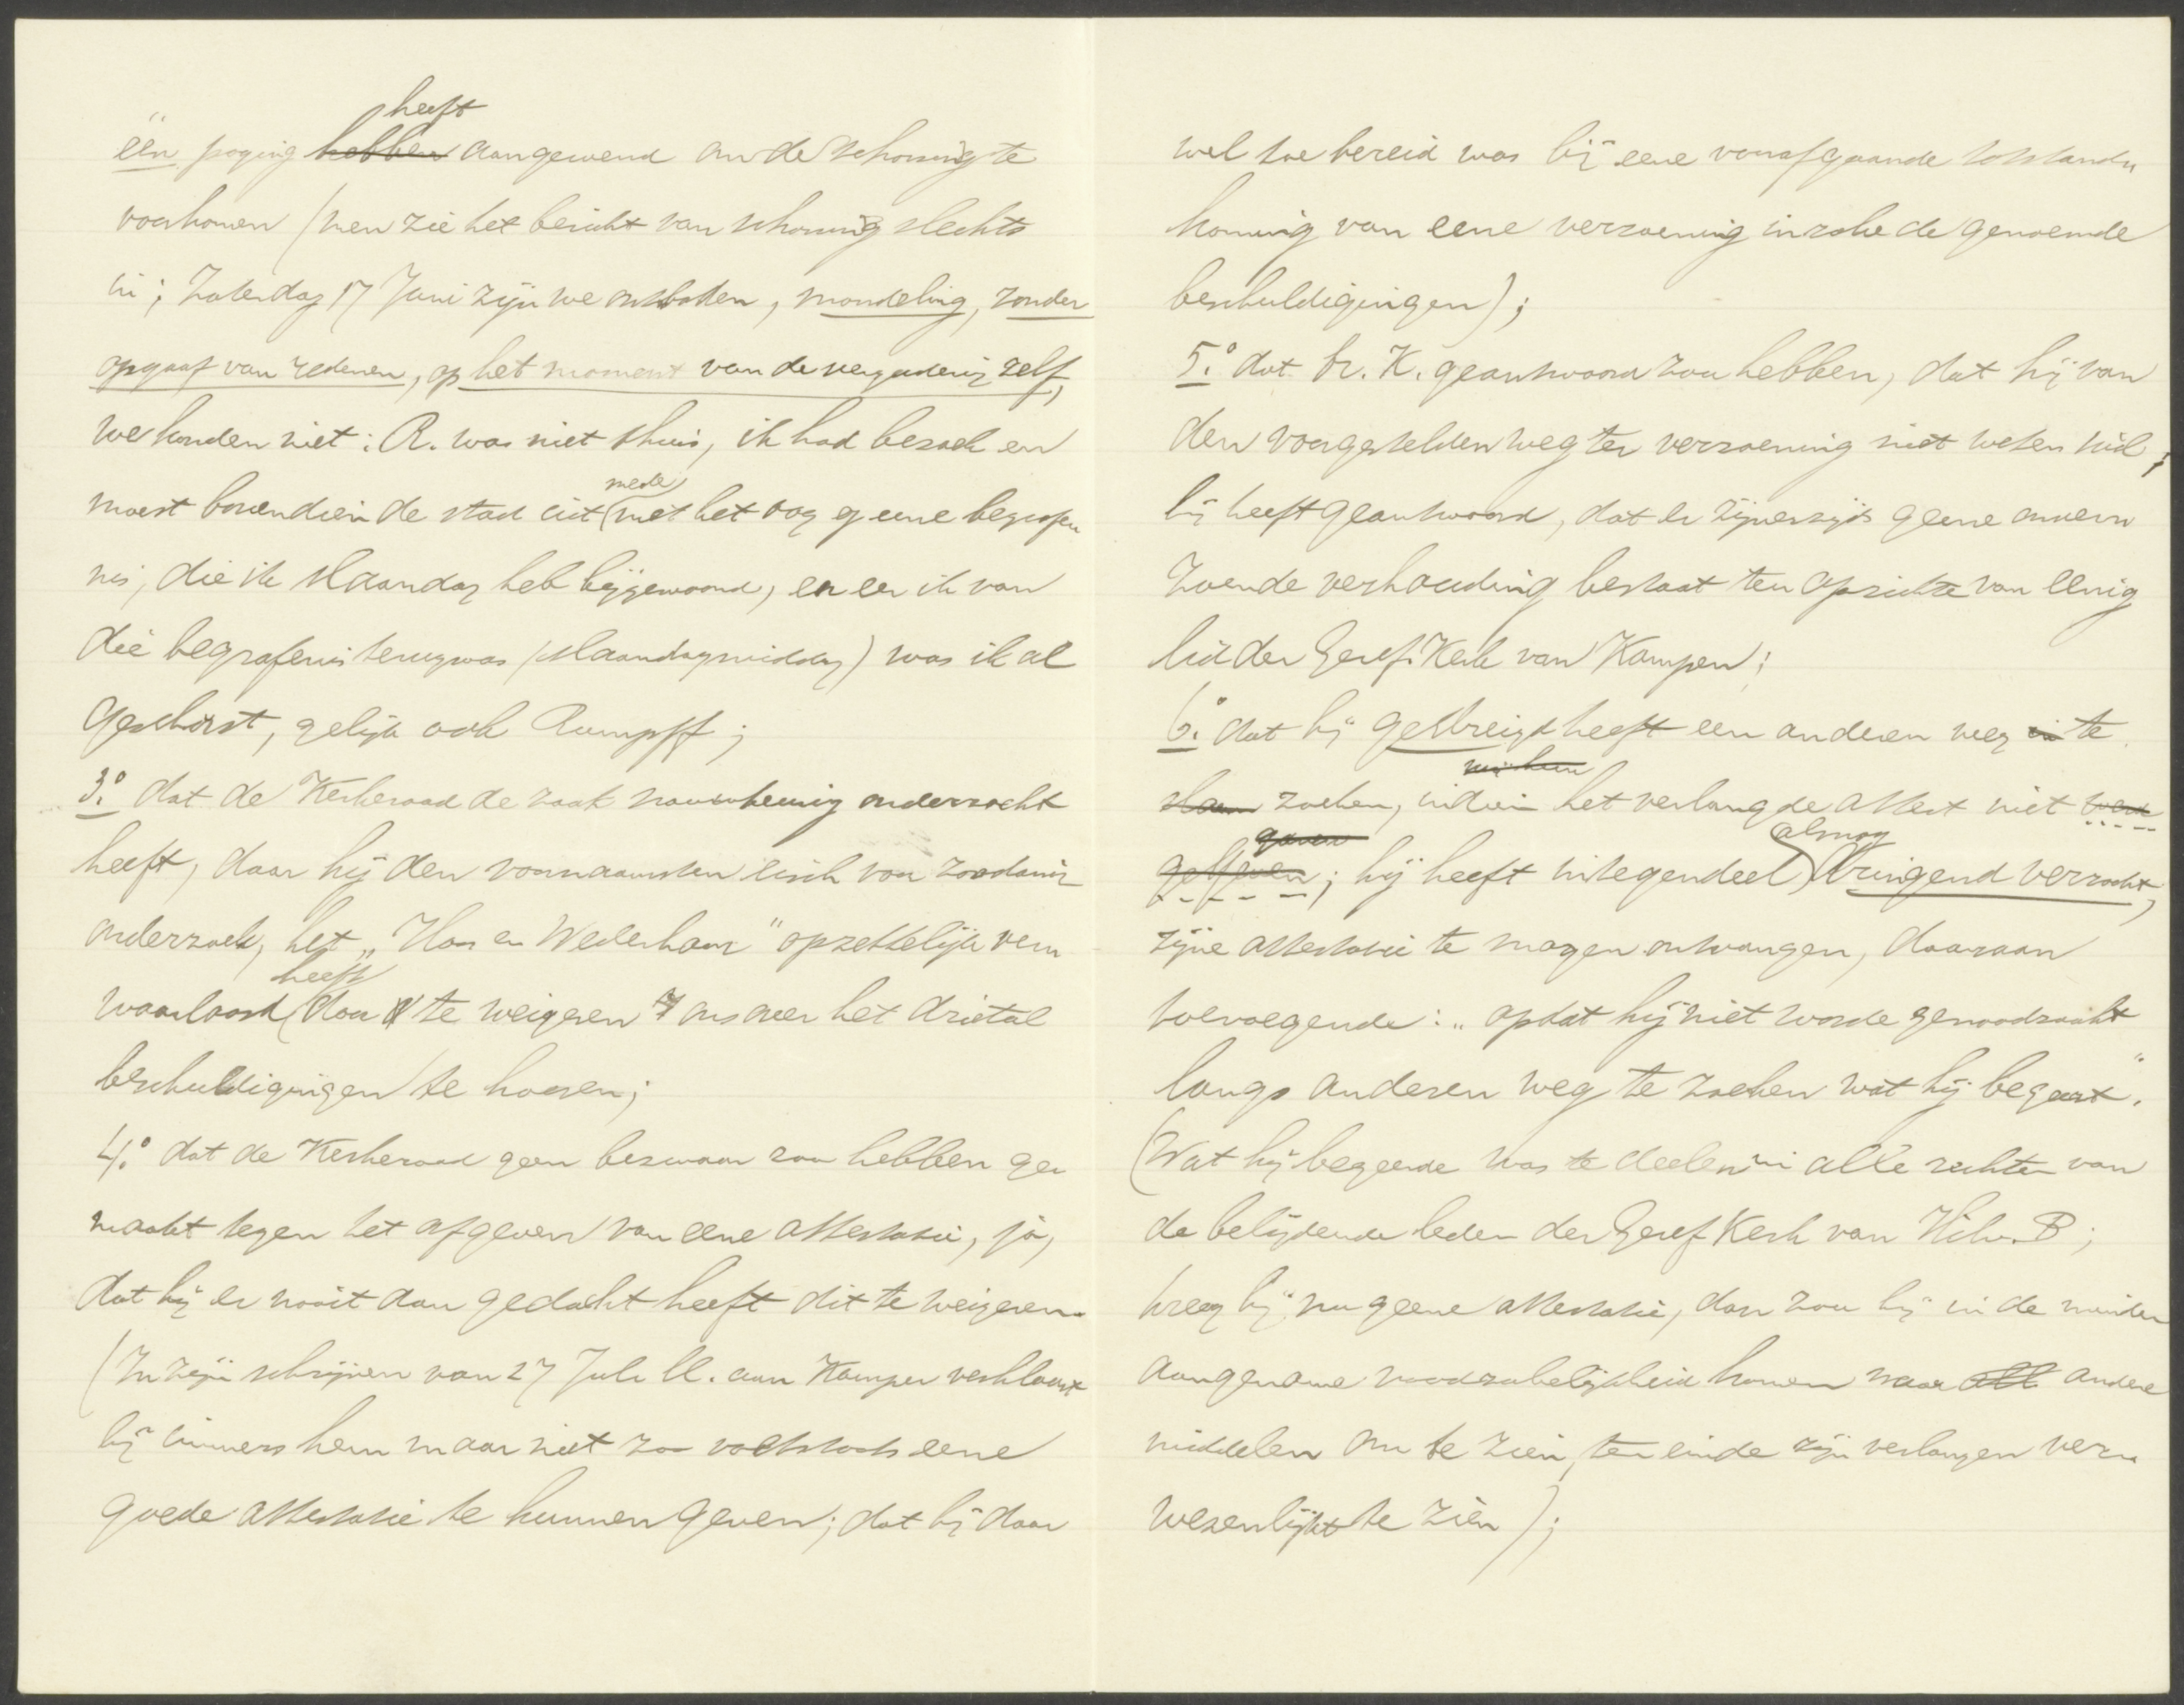 heeft
één poging hebben aangewend om de schorsing te
voorkomen (men zie het bericht van schorsing slechts
in; Zaterdag 17 Juni zijn we ontboden, mondeling, zonder
opgaaf van redenen, op het moment van de vergadering zelf,
we konden niet: R. was niet thuis, ik had bezoek en
mede
moest bovendien de stad uit (met het oog op eene begrafe-
nis, die ik Maandag heb bijgewoond, en eer ik van
die begrafenis terug was (Maandagmiddag) was ik al
geschorst, gelijk ook Rumpff;
3.° dat de Kerkeraad de zaak nauwkeurig onderzocht
heeft, daar hij den voornaamsten eisch van zoodanig
onderzoek, het „Hoor en Wederhoor" opzettelijk ver-
heeft
waarloosd door te weigeren ons over het drietal
beschuldigingen te hooren;
4.° dat de Kerkeraad geen bezwaar zou hebben ge-
maakt tegen het afgeven van eene attestatie, ja,
dat hij er nooit aan gedacht heeft dit te weigeren.
(In zijn schrijven van 27 Juli ll. aan Kamper verklaart
hij immers hem maar niet zoo voetstoots eene
goede attestatie te kunnen geven; dat hij daar
wel toe bereid was bij eene voorafgaande totstand-
koming van eene verzoening inzake de genoemde
beschuldigingen);
5.° dat br. K. geantwoord zou hebben, dat hij van
den voorgestelden weg ter verzoening niet weten wil;
hij heeft geantwoord, dat er zijnerzijds geene onver-
zoende verhouding bestaat ten opzichte van eenig
lid der Geref. Kerk van Kampen;
6.° dat hij gedreigd heeft een anderen weg in te
slaan zoeken, indien het verlangde attest niet werd
gaven alsnog
gegeven; hij heeft integendeel dringend verzocht,
zijne attestatie te mogen ontvangen, daaraan
toevoegende: „opdat hij niet worde genoodzaakt
langs anderen weg te zoeken wat hij begeert".
(Wat hij begeerde was te deelen in alle rechten van
de belijdende leden der Geref Kerk van Hilv. B;
kreeg hij nu geene attestatie, dan zou hij in de minder
aangename noodzakelijkheid komen naar andere
middelen om te zien, ten einde zijn verlangen ver-
wezenlijkt te zien);